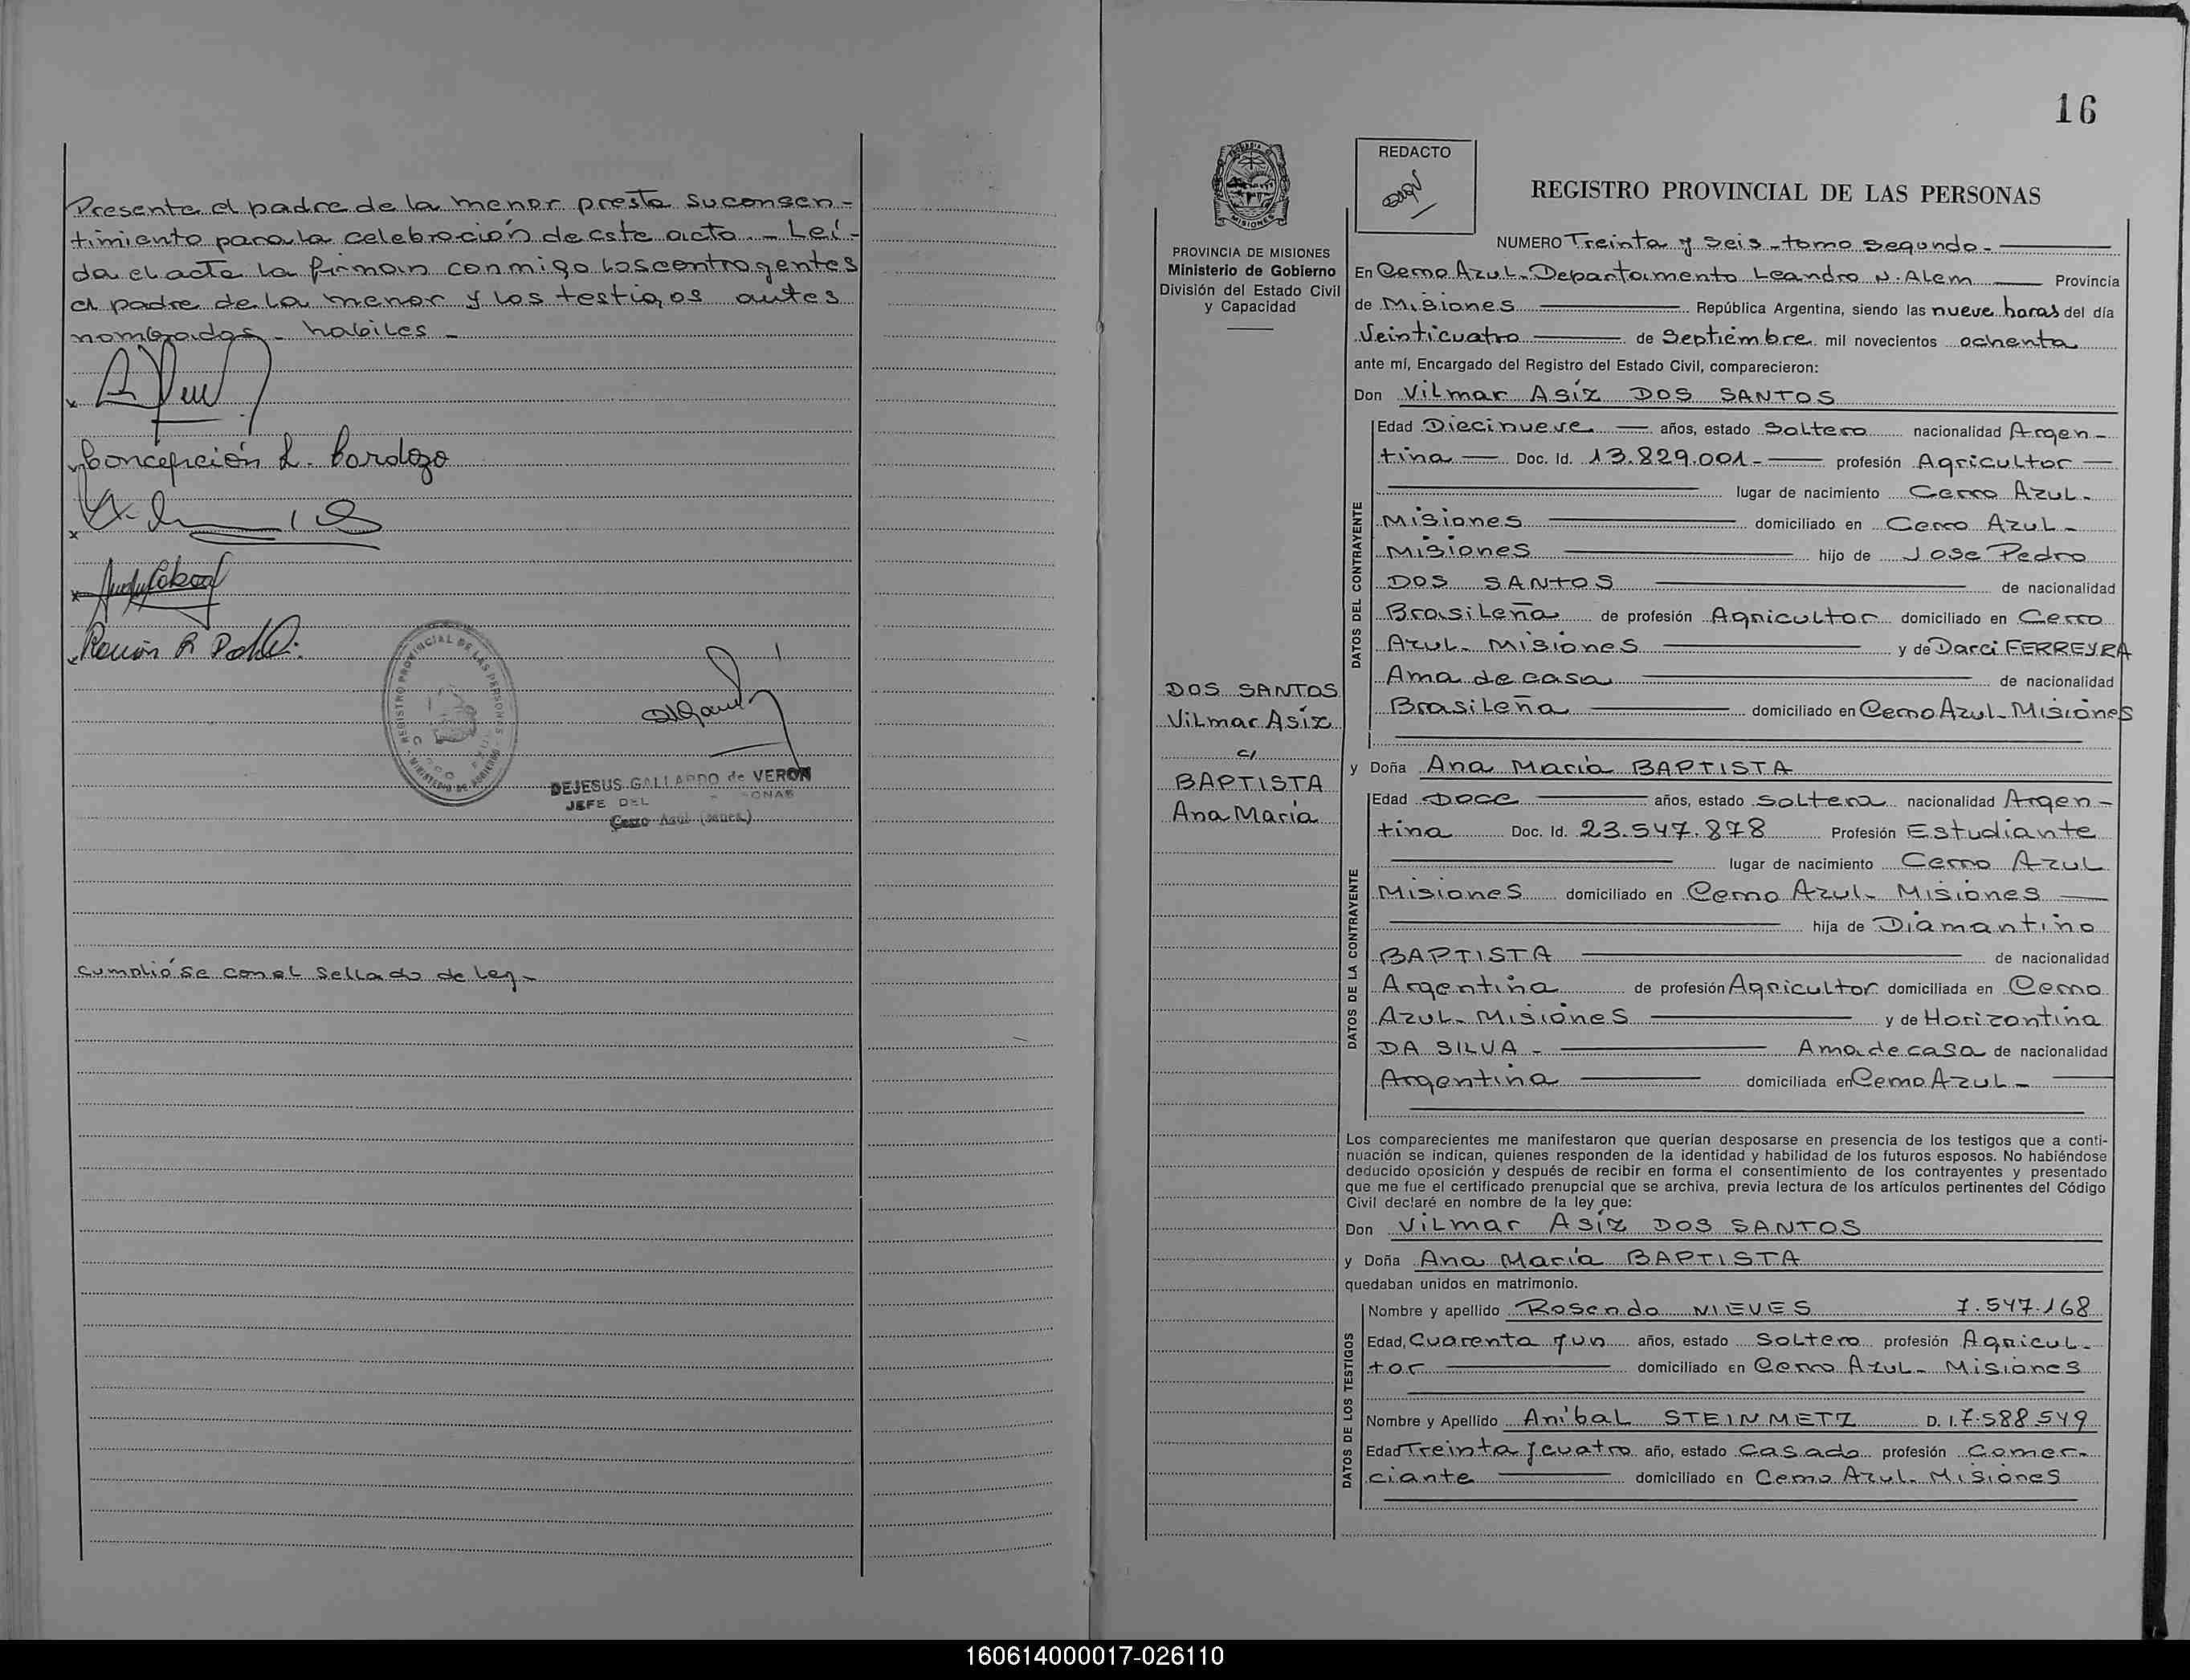 Presente el padre de la menor presta su consen-
timiento para la celebración de este acto. - Leí-
da el acta la firman conmigo los contrayentes
el padre de la menor y los testigos antes
nombrados - habiles -
Concepción L. Cardozo
REGISTRO PROVINCIAL DE LAS PERSONAS
MINISTERIO DE GOBIERNO
DEJESUS GALLARDO de VERON
JEFE DEL
Cerro Azul (Mnes.)
cumplióse con el sellado de ley -
16
REDACTO
REGISTRO PROVINCIAL DE LAS PERSONAS
MISIONES
PROVINCIA DE MISIONES
Ministerio de Gobierno
División del Estado Civil
y Capacidad
DOS SANTOS
Vilmar Asíz
c/
BAPTISTA
Ana María
NUMERO Treinta y seis - tomo segundo -
En Cerro Azul - Departamento Leandro N. Alem Provincia
de Misiones República Argentina, siendo las nueve horas del día
Veinticuatro de Septiembre mil novecientos ochenta
ante mí, Encargado del Registro del Estado Civil, comparecieron:
Don Vilmar Asíz DOS SANTOS
DATOS DEL CONTRAYENTE
Edad Diecinueve años, estado Soltero nacionalidad Argen-
tina Doc. Id. 13.829.001 - profesión Agricultor
lugar de nacimiento Cerro Azul -
Misiones domiciliado en Cerro Azul -
Misiones hijo de Jose Pedro
DOS SANTOS de nacionalidad
Brasileña de profesión Agricultor domiciliado en Cerro
Azul - Misiones y de Darci FERREYRA
Ama de casa de nacionalidad
Brasileña domiciliado en Cerro Azul - Misiones
y Doña Ana María BAPTISTA
DATOS DE LA CONTRAYENTE
Edad Doce años, estado Soltera nacionalidad Argen-
tina Doc. Id. 23.547.878 Profesión Estudiante
lugar de nacimiento Cerro Azul
Misiones domiciliado en Cerro Azul - Misiones
hija de Diamantino
BAPTISTA de nacionalidad
Argentina de profesión Agricultor domiciliada en Cerro
Azul - Misiones y de Horizontina
DA SILVA - Ama de casa de nacionalidad
Argentina domiciliada en Cerro Azul -
Los comparecientes me manifestaron que querían desposarse en presencia de los testigos que a conti-
nuación se indican, quienes responden de la identidad y habilidad de los futuros esposos. No habiéndose
deducido oposición y después de recibir en forma el consentimiento de los contrayentes y presentado
que me fue el certificado prenupcial que se archiva, previa lectura de los artículos pertinentes del Código
Civil declaré en nombre de la ley que:
Don Vilmar Asíz DOS SANTOS
y Doña Ana María BAPTISTA
quedaban unidos en matrimonio.
DATOS DE LOS TESTIGOS
Nombre y apellido Rosendo NIEVES 7.547.168
Edad, Cuarenta y un años, estado Soltero profesión Agricul-
tor domiciliado en Cerro Azul - Misiones
Nombre y Apellido Aníbal STEINMETZ D. I. 7.588.549
Edad Treinta y cuatro año, estado Casado profesión Comer-
ciante domiciliado en Cerro Azul - Misiones
160614000017-026110